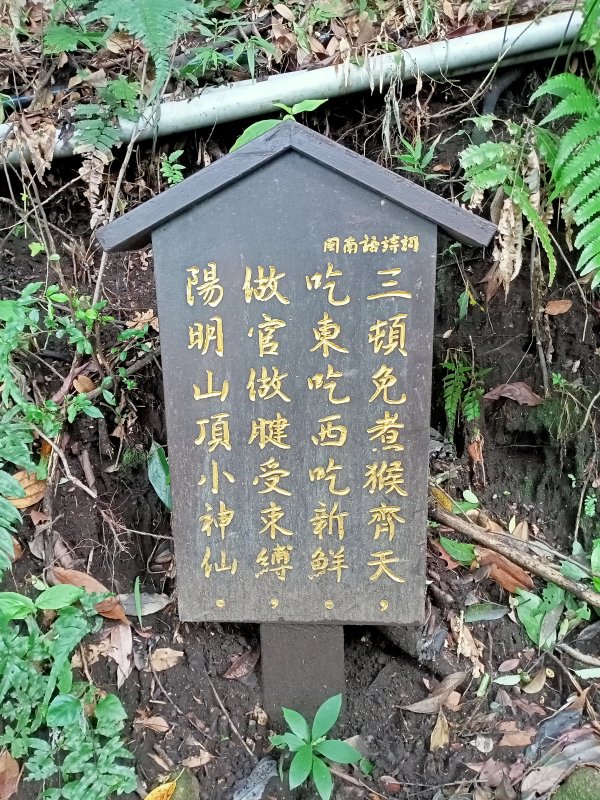 閩南語詩詞
三頓免煮猴齊天，
吃東吃西吃新鮮。
做官做腱受束縛，
陽明山頂小神仙。